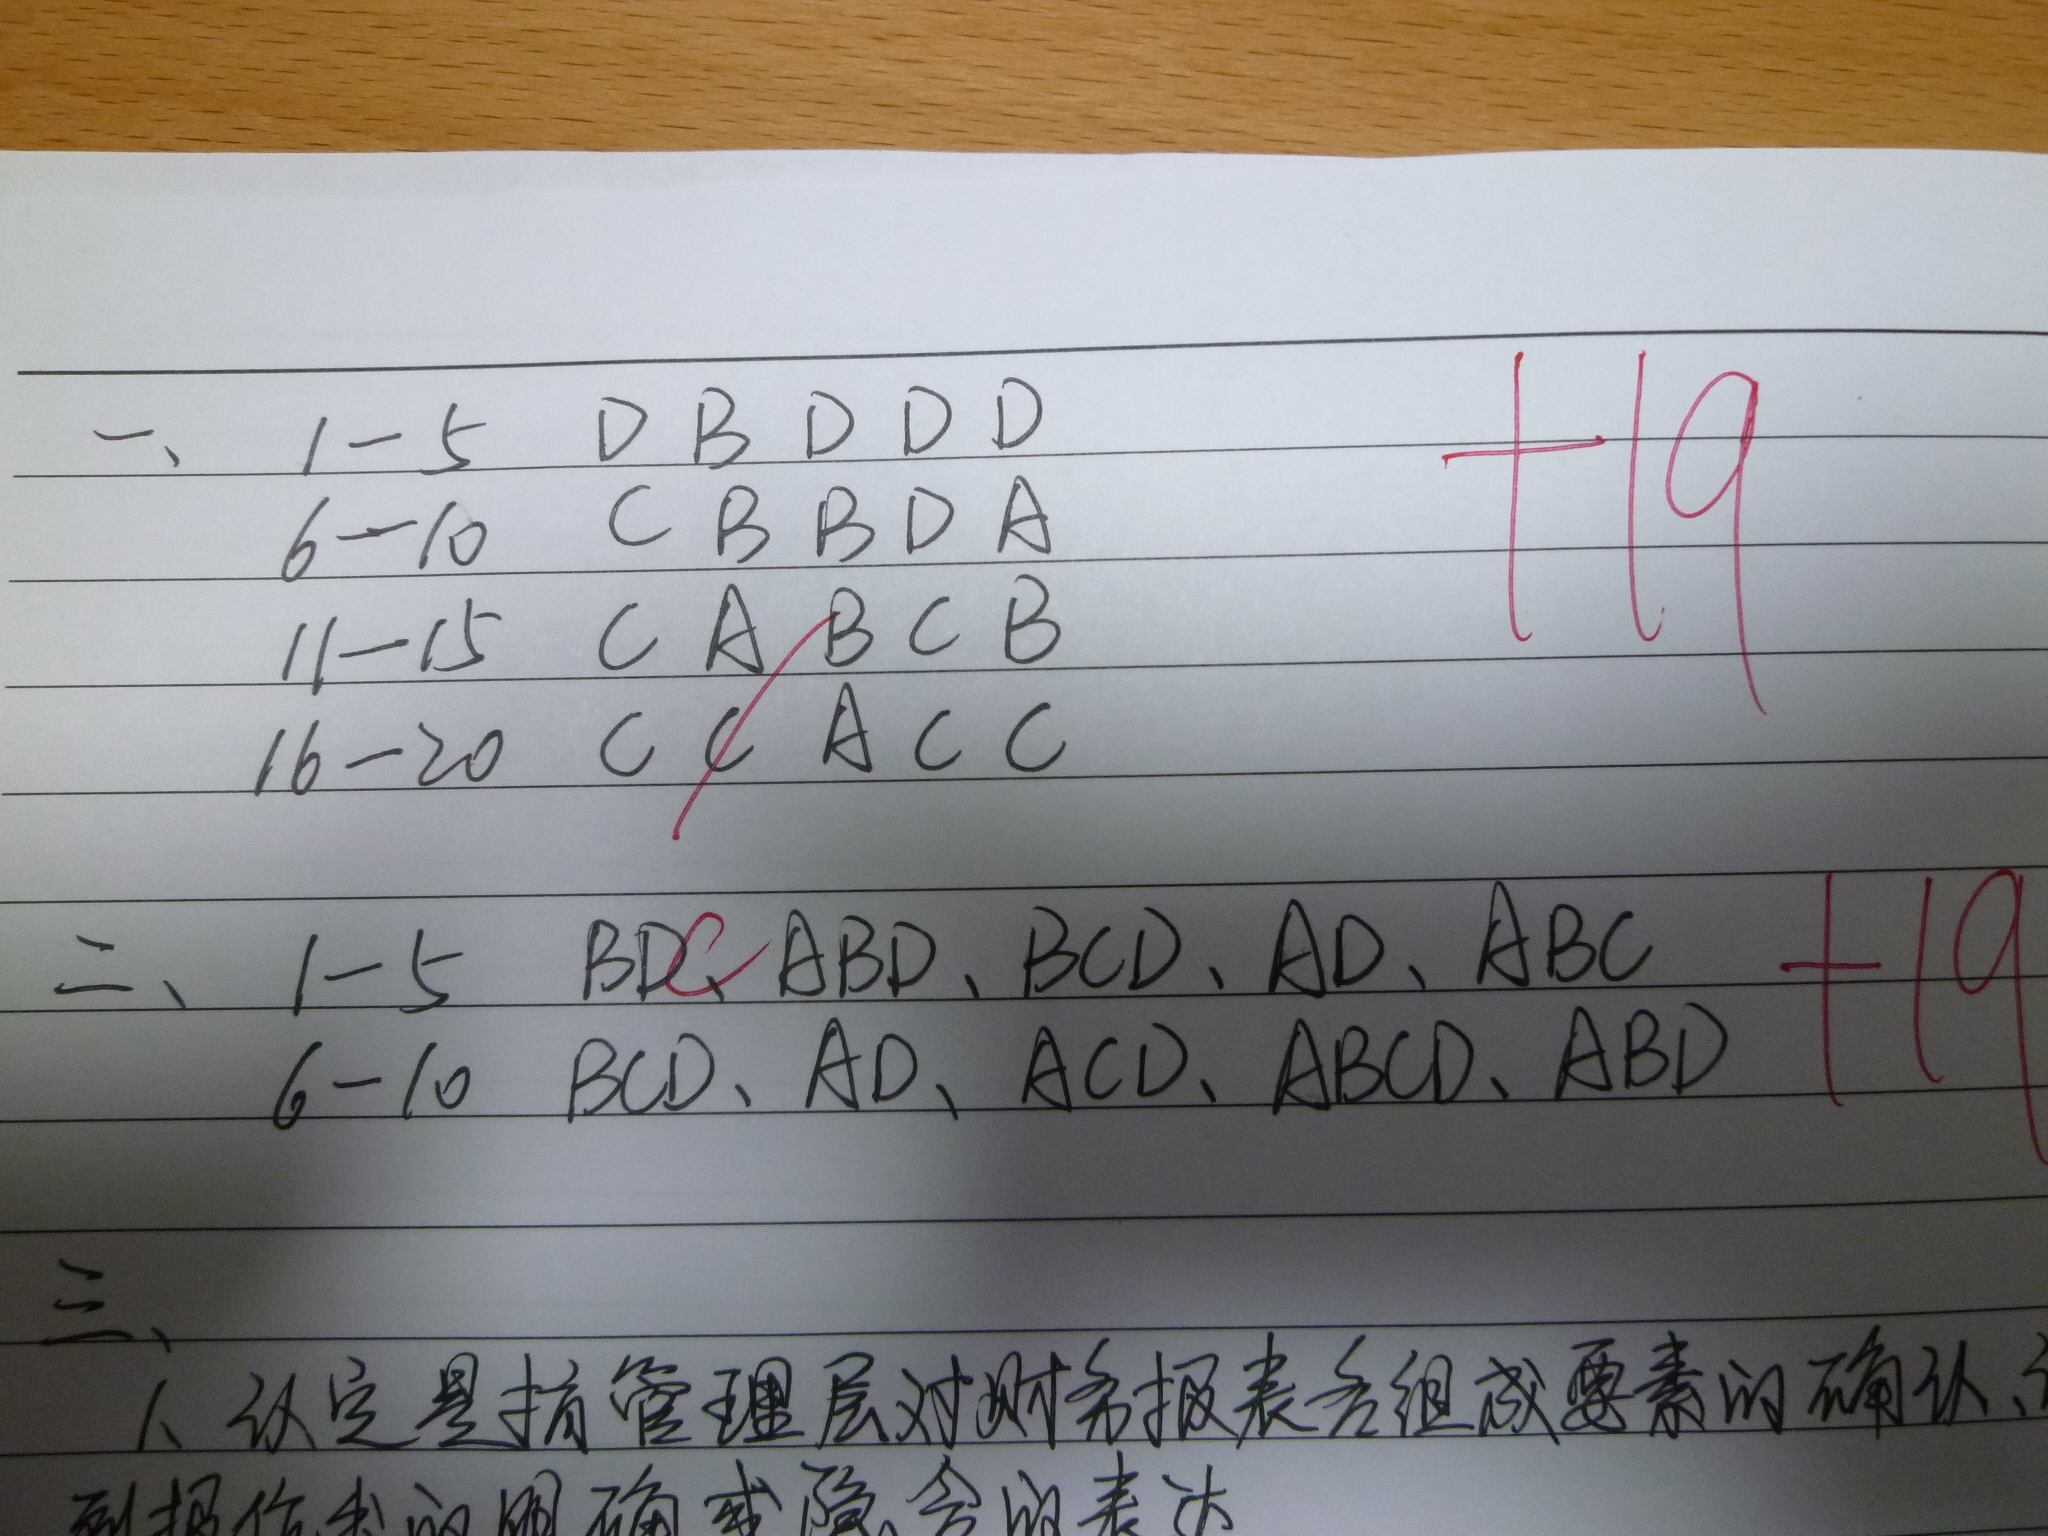 一、 1-5 D B D D D +19
6-10 C B B D A
11-15 C A B C B
16-20 C C A C C
二、 1-5 BDC、ABD、BCD、AD、ABC +19
6-10 BCD、AD、ACD、ABCD、ABD
三、
1、认定是指管理层对财务报表各组成要素的确认、
列报作出的明确或隐含的表达